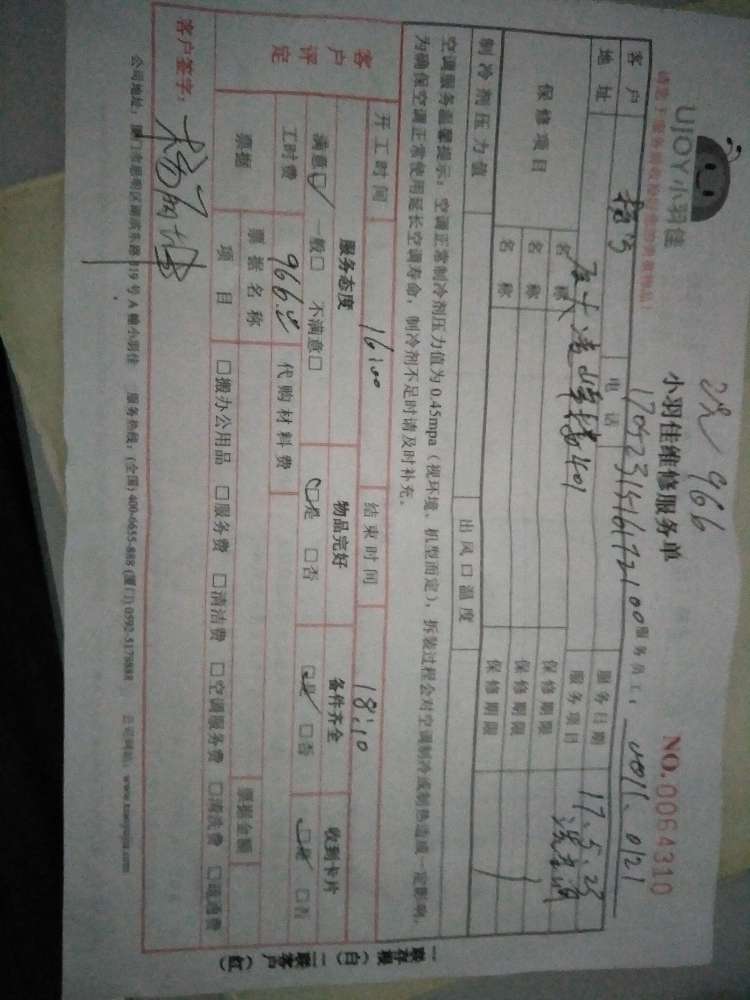 UJOY小羽佳
2次 966
小羽佳维修服务单
NO.0064310
服务员工:
客户
电话
服务日期
17.5.23
地址
服务项目
洗空调
保修项目
名称
保修期限
名称
保修期限
名称
保修期限
制冷剂压力值
出风口温度
空调服务温馨提示:空调正常制冷剂压力值为0.45mpa(视环境、机型而定),拆装过程会对空调制冷或制热造成一定影响,
为确保空调正常使用延长空调寿命,制冷剂不足时请及时补充。
开工时间
16:00
结束时间
18:10
客户评定
服务态度
物品完好
备件齐全
收到卡片
满意☑ 一般□ 不满意□
☑是 □否
☑是 □否
☑是 □否
工时费
966元
代购材料费
票据
票据名称
票据金额
项目
□搬办公用品 □服务费 □清洁费 □空调服务费 □清洗费 □疏通费
客户签字:
公司地址:厦门市思明区湖滨东路319号A幢小羽佳 服务热线:(全国)400-6655-888 (厦门)0592-5179888
一联存根(白) 二联客户(红)